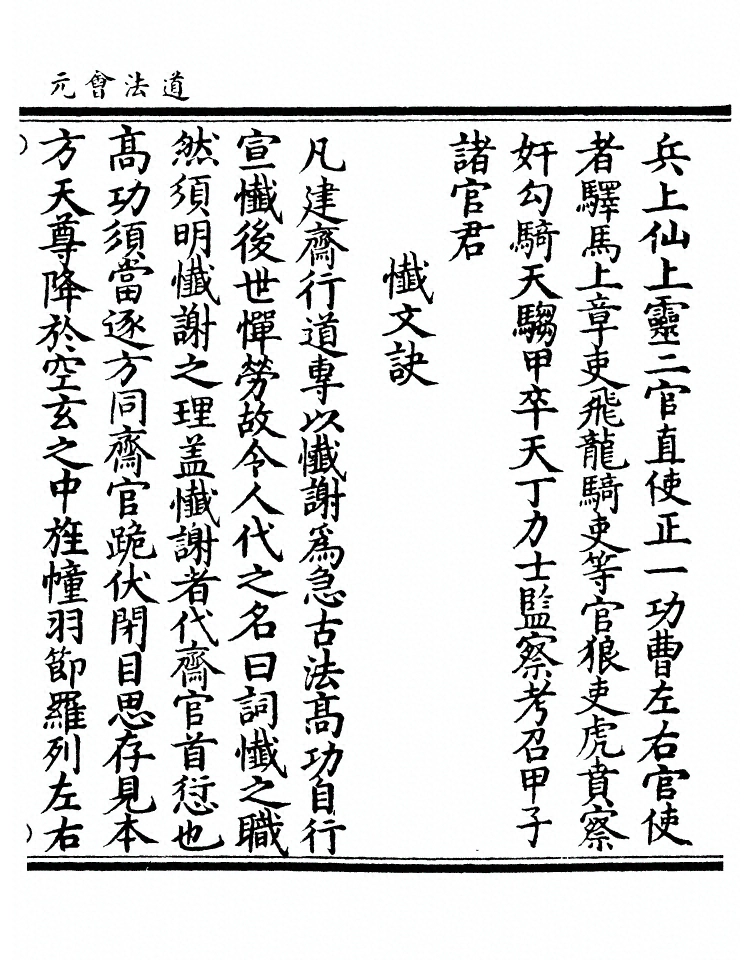 道法會元
兵上仙上靈二官直使正一功曹左右官使
者驛馬上章吏飛龍騎吏等官狼吏虎賁察
奸勾騎天騶甲卒天丁力士監察考召甲子
諸官君
懺文訣
凡建齋行道專以懺謝爲急古法高功自行
宣懺後世憚勞故令人代之名曰詞懺之職
然須明懺謝之理盖懺謝者代齋官首愆也
高功須當逐方同齋官跪伏閉目思存見本
方天尊降於空玄之中旌幢羽節羅列左右